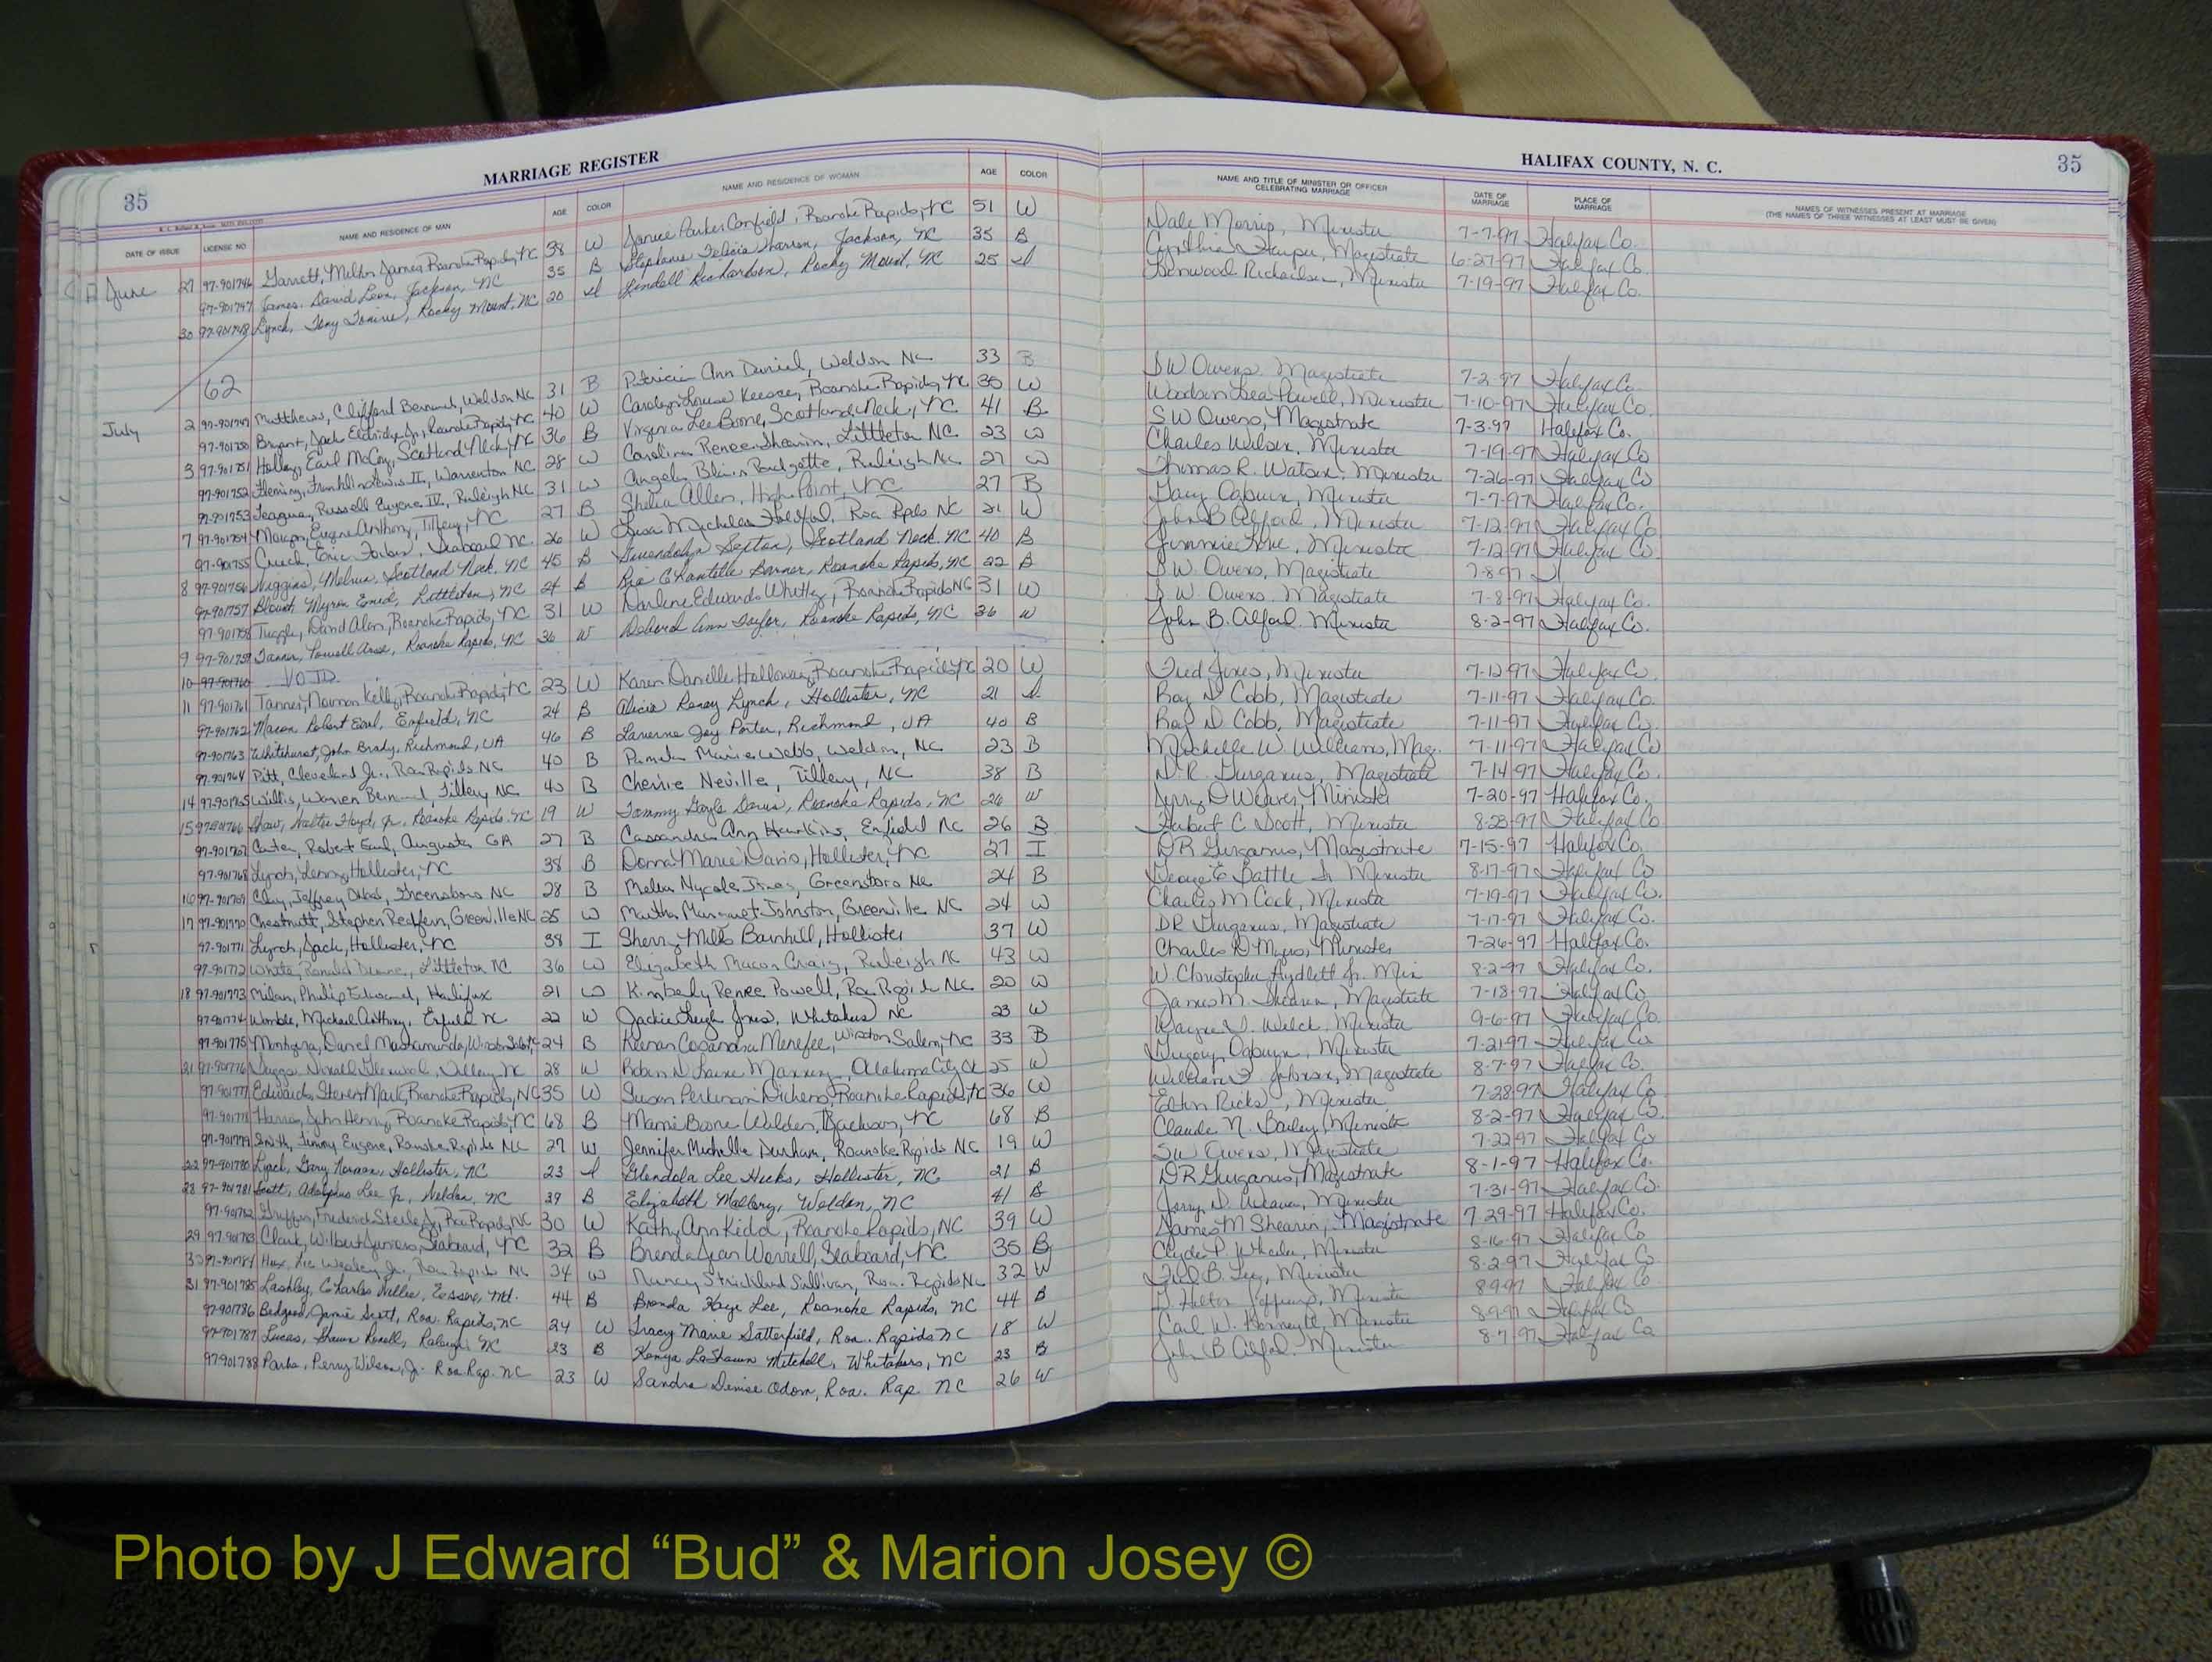 MARRIAGE REGISTER
35
DATE OF ISSUE LICENSE NO NAME AND RESIDENCE OF MAN AGE COLOR NAME AND RESIDENCE OF WOMAN AGE COLOR
HALIFAX COUNTY, N. C.
35
NAME AND TITLE OF MINISTER OR OFFICER CELEBRATING MARRIAGE DATE OF MARRIAGE PLACE OF MARRIAGE NAMES OF WITNESSES PRESENT AT MARRIAGE
(THE NAMES OF THREE WITNESSES AT LEAST MUST BE GIVEN)
June 27 97-901746 Garrett, James Roanoke Rapids, NC 58 W Janice Parker Canfield, Roanoke Rapids, NC 51 W Dale Morris, Minister 7-7-97 Halifax Co.
97-901747 James, David Leon, Jackson, NC 35 B Stephanie Felicia Warren, Jackson, NC 35 B Cynthia Harper, Magistrate 6-27-97 Halifax Co.
30 97-901748 Lynch, Tony Rocky Mount, NC 20 I Richardson, Rocky Mount, NC 25 I Richardson, Minister 7-19-97 Halifax Co.
62
July 2 97-901749 Matthews, Clifford Bernard, Weldon NC 31 B Patricia Ann Daniel, Weldon NC 33 B SW Owens, Magistrate 7-2-97 Halifax Co.
97-901750 Bryant, Jack Eldridge Jr, Roanoke Rapids, NC 40 W Carolyn Louise Keesee, Roanoke Rapids, NC 35 W Powell, Minister 7-10-97 Halifax Co.
3 97-901751 Earl McCoy, Scotland Neck, NC 36 B Virginia Lee Boone, Scotland Neck, NC 41 B SW Owens, Magistrate 7-3-97 Halifax Co.
97-901752 Fleming, Franklin Lewis II, Warrenton NC 28 W Carolina Renee Shearin, Littleton NC 23 W Charles Wilson, Minister 7-19-97 Halifax Co
97-901753 Teague, Russell Eugene IV, Raleigh NC 31 W Angela Padgette, Raleigh NC 27 W Thomas R. Watson, Minister 7-26-97 Halifax Co
7 97-901754 Eugene Anthony, Tillery, NC 27 B Shelia Allen, High Point, NC 27 B Gary Ogburn, Minister 7-7-97 Halifax Co.
97-901755 Creech, Eric Seaboard NC 26 W Lisa Michelle Roa Rpds NC 21 W John B Alford, Minister 7-12-97 Halifax Co
8 97-901756 Huggins, Melvin, Scotland Neck, NC 45 B Gwendolyn Sexton, Scotland Neck, NC 40 B Jimmie Minister 7-12-97 Halifax Co
97-901757 Blount, Myron Littleton, NC 24 B Chantelle Roanoke Rapids, NC 22 B S W. Owens, Magistrate 7-8-97
97-901758 Tuggle, David Alan, Roanoke Rapids, NC 31 W Darlene Edwards Whitley, Roanoke Rapids NC 31 W S W Owens, Magistrate 7-8-97 Halifax Co.
9 97-901759 Tanner, Powell Roanoke Rapids, NC 36 W Deborah Ann Taylor, Roanoke Rapids, NC 36 W John B. Alford, Minister 8-2-97 Halifax Co.
10 97-901760 VOID
11 97-901761 Tanner, Norman Kelly, Roanoke Rapids, NC 23 W Karen Danielle Holloway, Roanoke Rapids, NC 20 W Fred Jones, Minister 7-12-97 Halifax Co
97-901762 Mason, Robert Earl, Enfield, NC 24 B Alicia Lynch, Hollister, NC 21 I Roy D Cobb, Magistrate 7-11-97 Halifax Co.
97-901763 Whitehurst, John Brady, Richmond, VA 46 B Laverne Joy Porter, Richmond, VA 40 B Roy D. Cobb, Magistrate 7-11-97 Halifax Co.
97-901764 Pitt, Cleveland Jr., Roa Rapids NC 40 B Pamela Marie Webb, Weldon, NC 23 B Michelle W. Williams, Mag. 7-11-97 Halifax Co
14 97-901765 Willis, Warren Bernard, Tillery NC 40 B Cherrie Neville, Tillery, NC 38 B D.R. Gurganus, Magistrate 7-14-97 Halifax Co.
15 97-901766 Shaw, Walter Floyd, Jr., Roanoke Rapids, NC 19 W Tammy Gayle Davis, Roanoke Rapids, NC 26 W Jerry D Weaver, Minister 7-20-97 Halifax Co.
97-901767 Carter, Robert Earl, Augusta GA 27 B Cassandra Ann Hawkins, Enfield NC 26 B Hubert C. Scott, Minister 8-23-97 Halifax Co
97-901768 Lynch, Hollister, NC 38 B Donna Marie Davis, Hollister, NC 27 I DR Gurganus, Magistrate 7-15-97 Halifax Co.
16 97-901769 Clay, Jeffrey Greensboro NC 28 B Melba Nycole Jones, Greensboro NC 24 B George E Battle Jr Minister 8-17-97 Halifax Co
17 97-901770 Chestnutt, Stephen Redfern, Greenville NC 25 W Martha Margaret Johnston, Greenville NC 24 W Charles M Cook, Minister 7-19-97 Halifax Co.
97-901771 Lynch, Jack, Hollister, NC 38 I Sherry Mills Barnhill, Hollister 37 W DR Gurganus, Magistrate 7-17-97 Halifax Co.
97-901772 White, Ronald Littleton NC 36 W Elizabeth Macon Craig, Raleigh NC 43 W Charles D Myers, Minister 7-26-97 Halifax Co.
18 97-901773 Milan, Philip Edward, Halifax 21 W Kimberly Renee Powell, Roa Rapids NC 20 W W. Christopher Aydlett Jr. Min 8-2-97 Halifax Co.
97-901774 Womble, Michael Anthony, Enfield NC 22 W Jackie Leigh Jones, Whitakers NC 23 W James M. Shearin, Magistrate 7-18-97 Halifax Co
97-901775 Daniel Winston Salem, NC 24 B Menefee, Winston Salem, NC 33 B Wayne D. Welch, Minister 9-6-97 Halifax Co.
21 97-901776 Tillery NC 28 W Robin Oklahoma City, Ok 25 W Gregory Ogburn, Minister 7-21-97 Halifax Co
97-901777 Edwards, Steven Mark, Roanoke Rapids, NC 35 W Susan Perkinson Dickens, Roanoke Rapids, NC 36 W William F. Johnson, Magistrate 8-7-97 Halifax Co.
97-901778 Harris, John Henry, Roanoke Rapids, NC 68 B Mamie Boone Walden, Jackson, NC 68 B Elton Ricks, Minister 7-28-97 Halifax Co
97-901779 Smith, Jimmy Eugene, Roanoke Rapids NC 27 W Jennifer Michelle Durham, Roanoke Rapids NC 19 W Claude N. Bailey, Minister 8-2-97 Halifax Co.
22 97-901780 Lynch, Gary Norman, Hollister, NC 23 I Glendola Lee Hicks, Hollister, NC 21 B SW Owens, Magistrate 7-22-97 Halifax Co
28 97-901781 Scott, Adolphus Lee Jr, Weldon, NC 39 B Elizabeth Mallory, Weldon, NC 41 B DR Gurganus, Magistrate 8-1-97 Halifax Co.
97-901782 Griffin, Frederick Steele, Jr, Roa Rapids, NC 30 W Kathy Ann Kidd, Roanoke Rapids, NC 39 W Jerry D. Weaver, Minister 7-31-97 Halifax Co.
29 97-901783 Clark, Wilbert Junious, Seaboard, NC 32 B Brenda Jean Worrell, Seaboard, NC 35 B James M Shearin, Magistrate 7-29-97 Halifax Co.
30 97-901784 Hux, Wesley Jr., Roa Rapids NC 34 W Nancy Strickland Sullivan, Roa. Rapids NC 32 W Clyde P. Wheeler, Minister 8-16-97 Halifax Co
31 97-901785 Lashley, Charles Willie, Essex, Md. 44 B Brenda Kaye Lee, Roanoke Rapids, NC 44 B B. Minister 8-2-97 Halifax Co
97-901786 Bedgood, Jamie Scott, Roa. Rapids, NC 24 W Tracy Marie Satterfield, Roa. Rapids NC 18 W Minister 8-9-97 Halifax Co
97-901787 Lucas, Shawn Raleigh NC 23 B Kenya LaShawn Mitchell, Whitakers, NC 23 B Carl W. Minister 8-9-97 Halifax Co
97-901788 Parks, Perry Wilson, Jr. Roa. Rap. NC 23 W Sandra Denise Odom, Roa. Rap. NC 26 W John B Alford, Minister 8-7-97 Halifax Co
Photo by J Edward “Bud” & Marion Josey ©